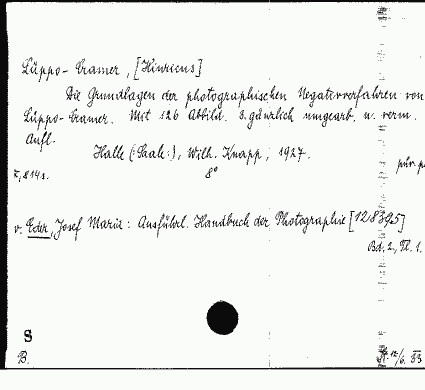 Lüppo-Cramer, [Hinricus]
Die Grundlagen der photographischen Negativverfahren von
Lüppo-Cramer. Mit 126 Abbild. 3. gänzlich umgearb. u. verm.
Aufl.
Halle (:Saale:), Wilh. Knapp, 1927.
8°
v. Eder, Josef Maria: Ausführl. Handbuch der Photographie [128395]
Bd. 2, Tl. 1.
S
B.